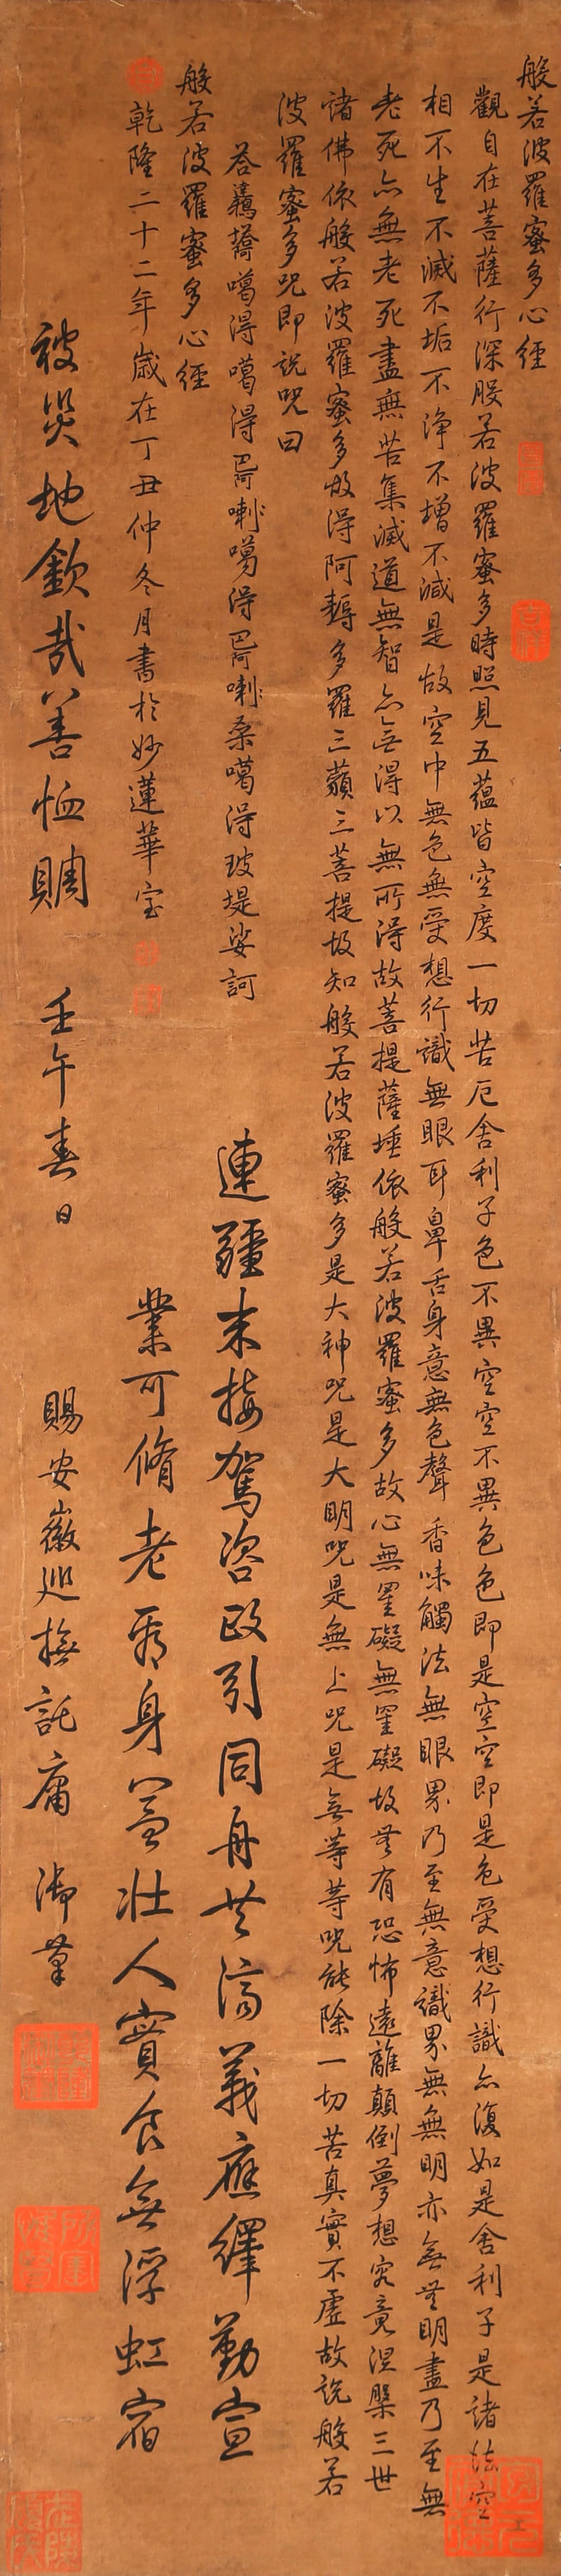 般若波羅蜜多心經
觀自在菩薩行深般若波羅蜜多時照見五蘊皆空度一切苦厄舍利子色不異空空不異色色即是空空即是色受想行識亦復如是舍利子是諸法空
相不生不滅不垢不淨不增不減是故空中無色無受想行識無眼耳鼻舌身意無色聲香味觸法無眼界乃至無意識界無無明亦無無明盡乃至無
老死亦無老死盡無苦集滅道無智亦無得以無所得故菩提薩埵依般若波羅蜜多故心無罣礙無罣礙故無有恐怖遠離顛倒夢想究竟涅槃三世
諸佛依般若波羅蜜多故得阿耨多羅三藐三菩提故知般若波羅蜜多是大神咒是大明咒是無上咒是無等等咒能除一切苦真實不虛故說般若
波羅蜜多咒即說咒曰
噶得噶得 喇噶得 喇桑噶得玻堤娑訶
般若波羅蜜多心經
乾隆二十二年歲在丁丑仲冬月書於妙蓮華室
吉祥
連疆未接駕咨政引同舟共濟義應繹勤宣
業可脩老看身益壯人實食無浮虹宿
被災地欽哉善恤賙 壬午春日 賜安徽巡撫託庸 御筆